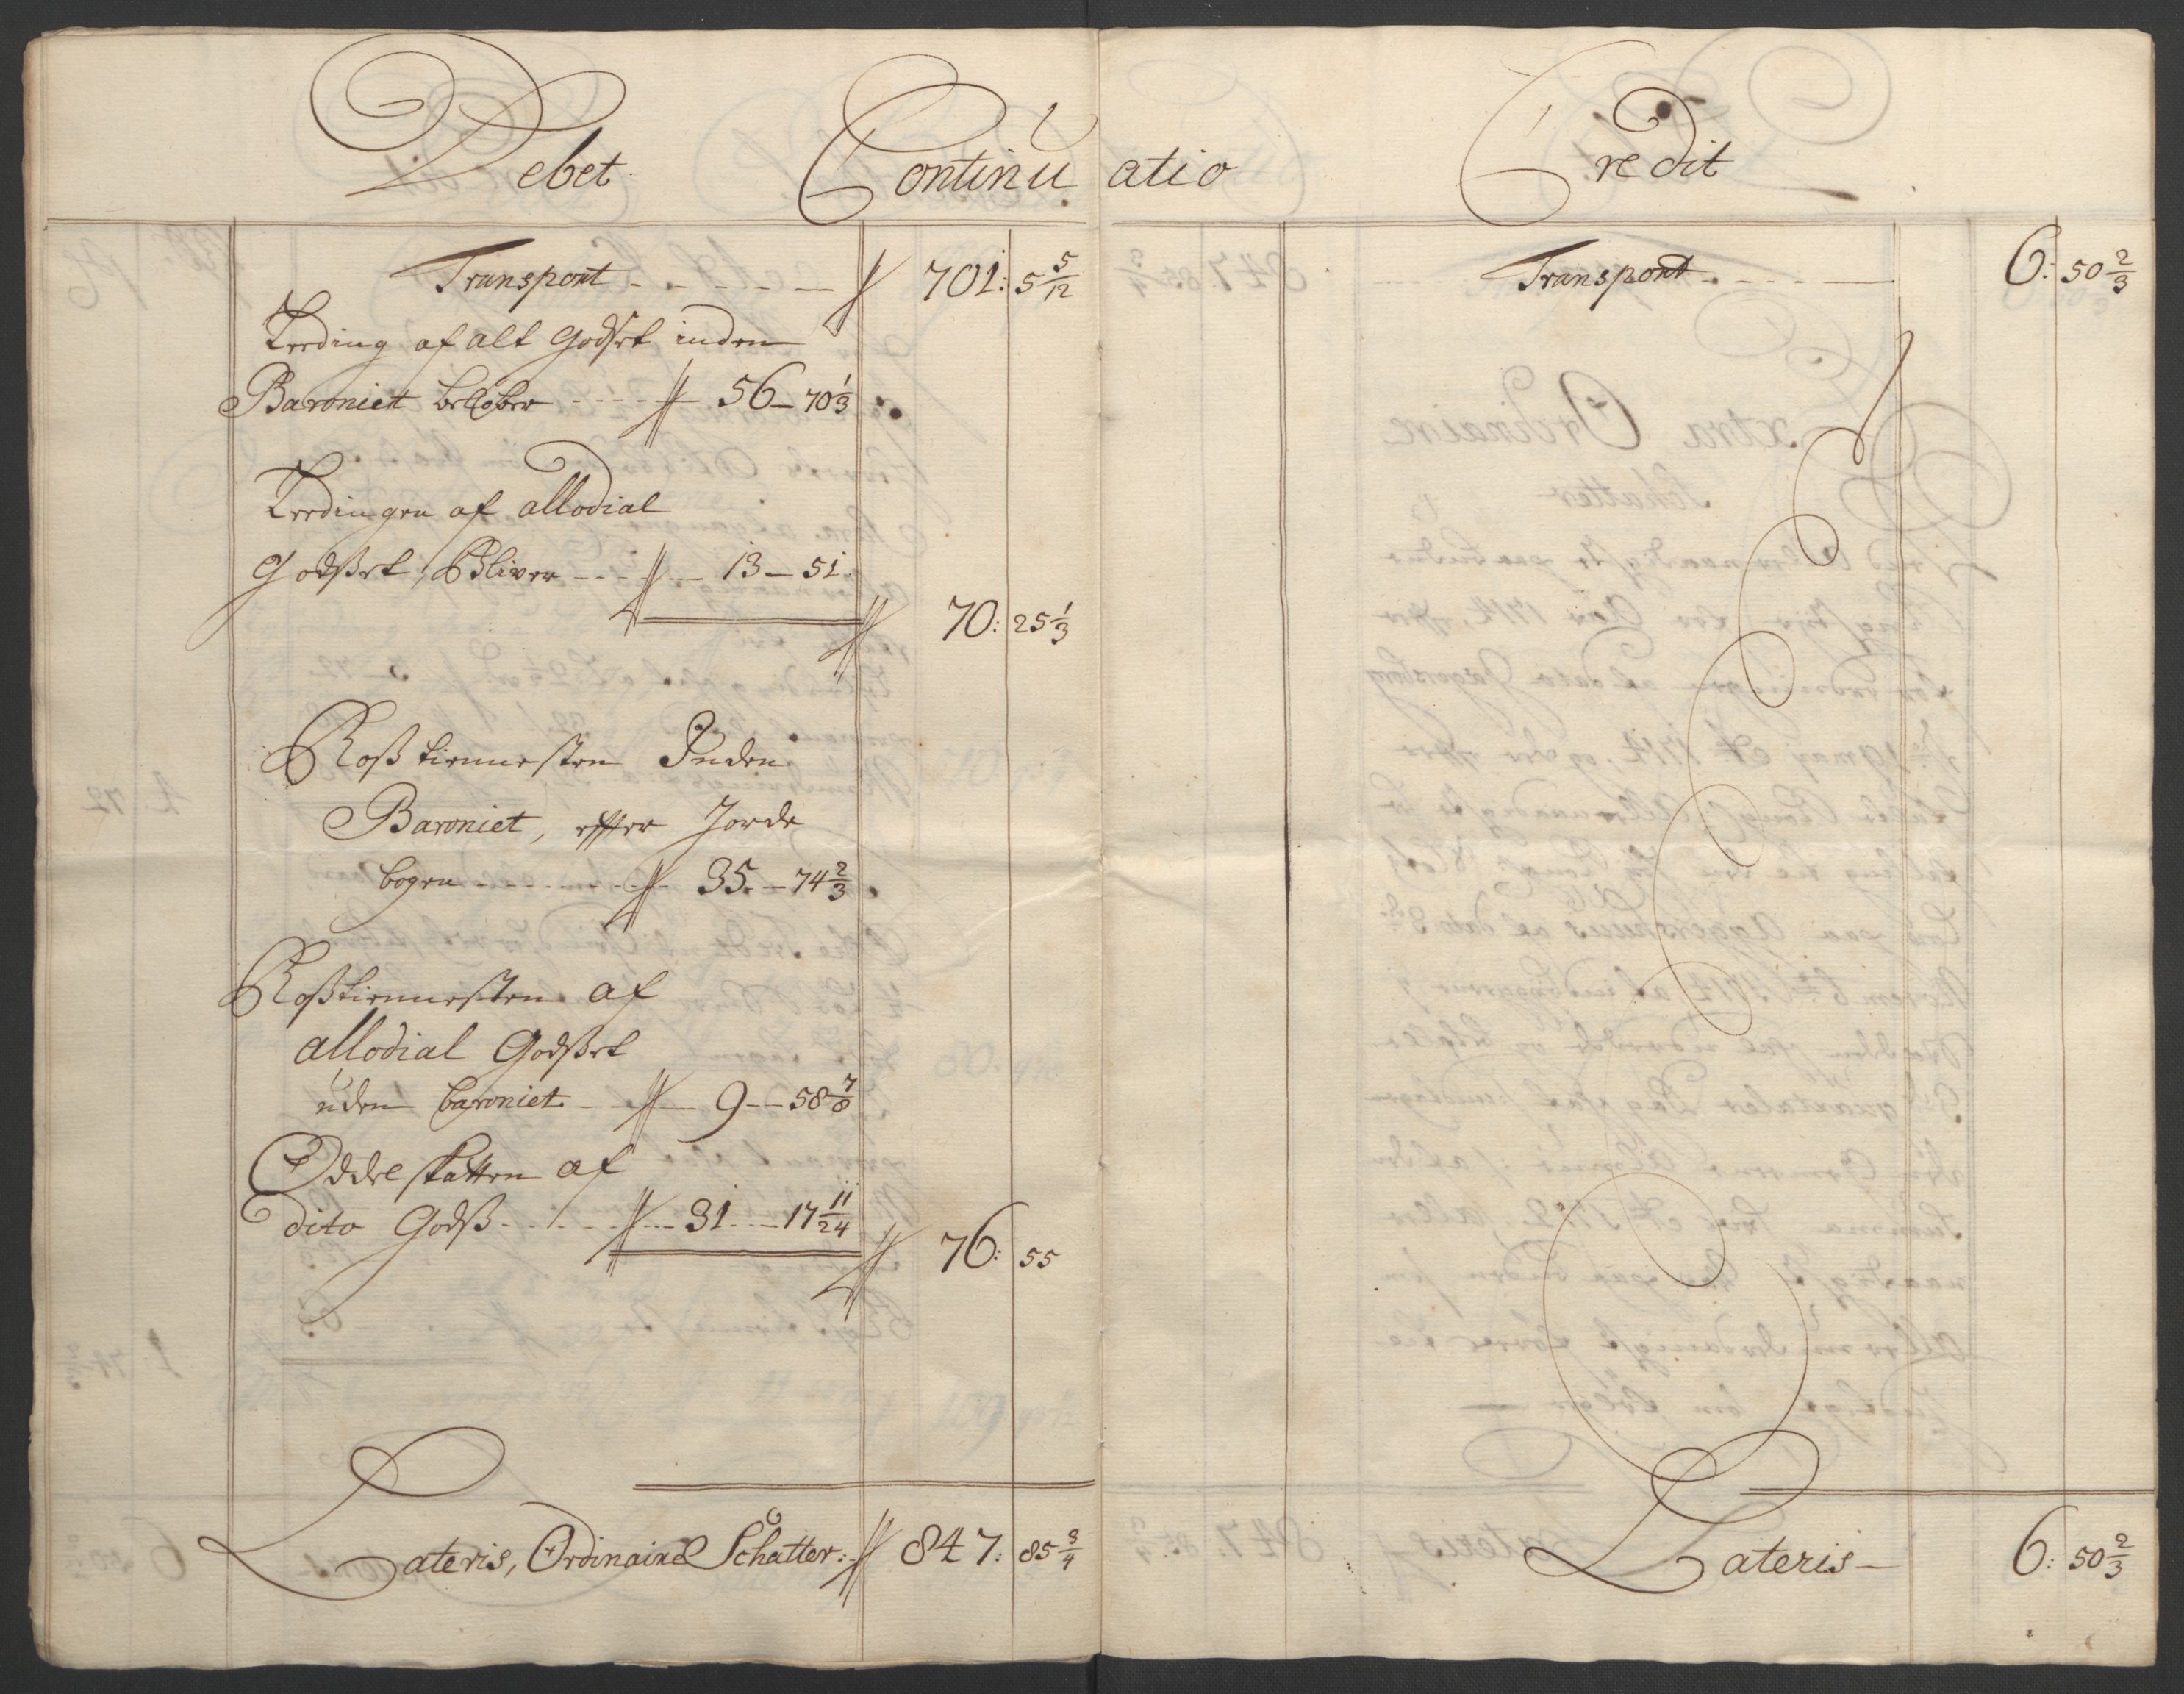 Debet Continu atio Credit
Transport - - - - - 701: 5 5/12
Leeding af alt Godset inden
Baroniet beløber - - - - 56 - 70 1/3
Leedingen af allodial
Godsset, Bliver - - - - 13 - 51
70: 25 1/3
Rosstiennesten Inden
Baroniet, effter Jorde
bogen - - - - - - - 35 - 74 2/3
Rosstiennesten af
allodial Godsset
uden baroniet - - - 9 - - 58 7/8
Oddelskatten af
dito Godss - - - - - - 31 - - 17 11/24
76: 55
Lateris, Ordinaire Schatter: 847: 85 3/4
Transport - - - - 6: 50 2/3
Lateris - 6: 50 2/3